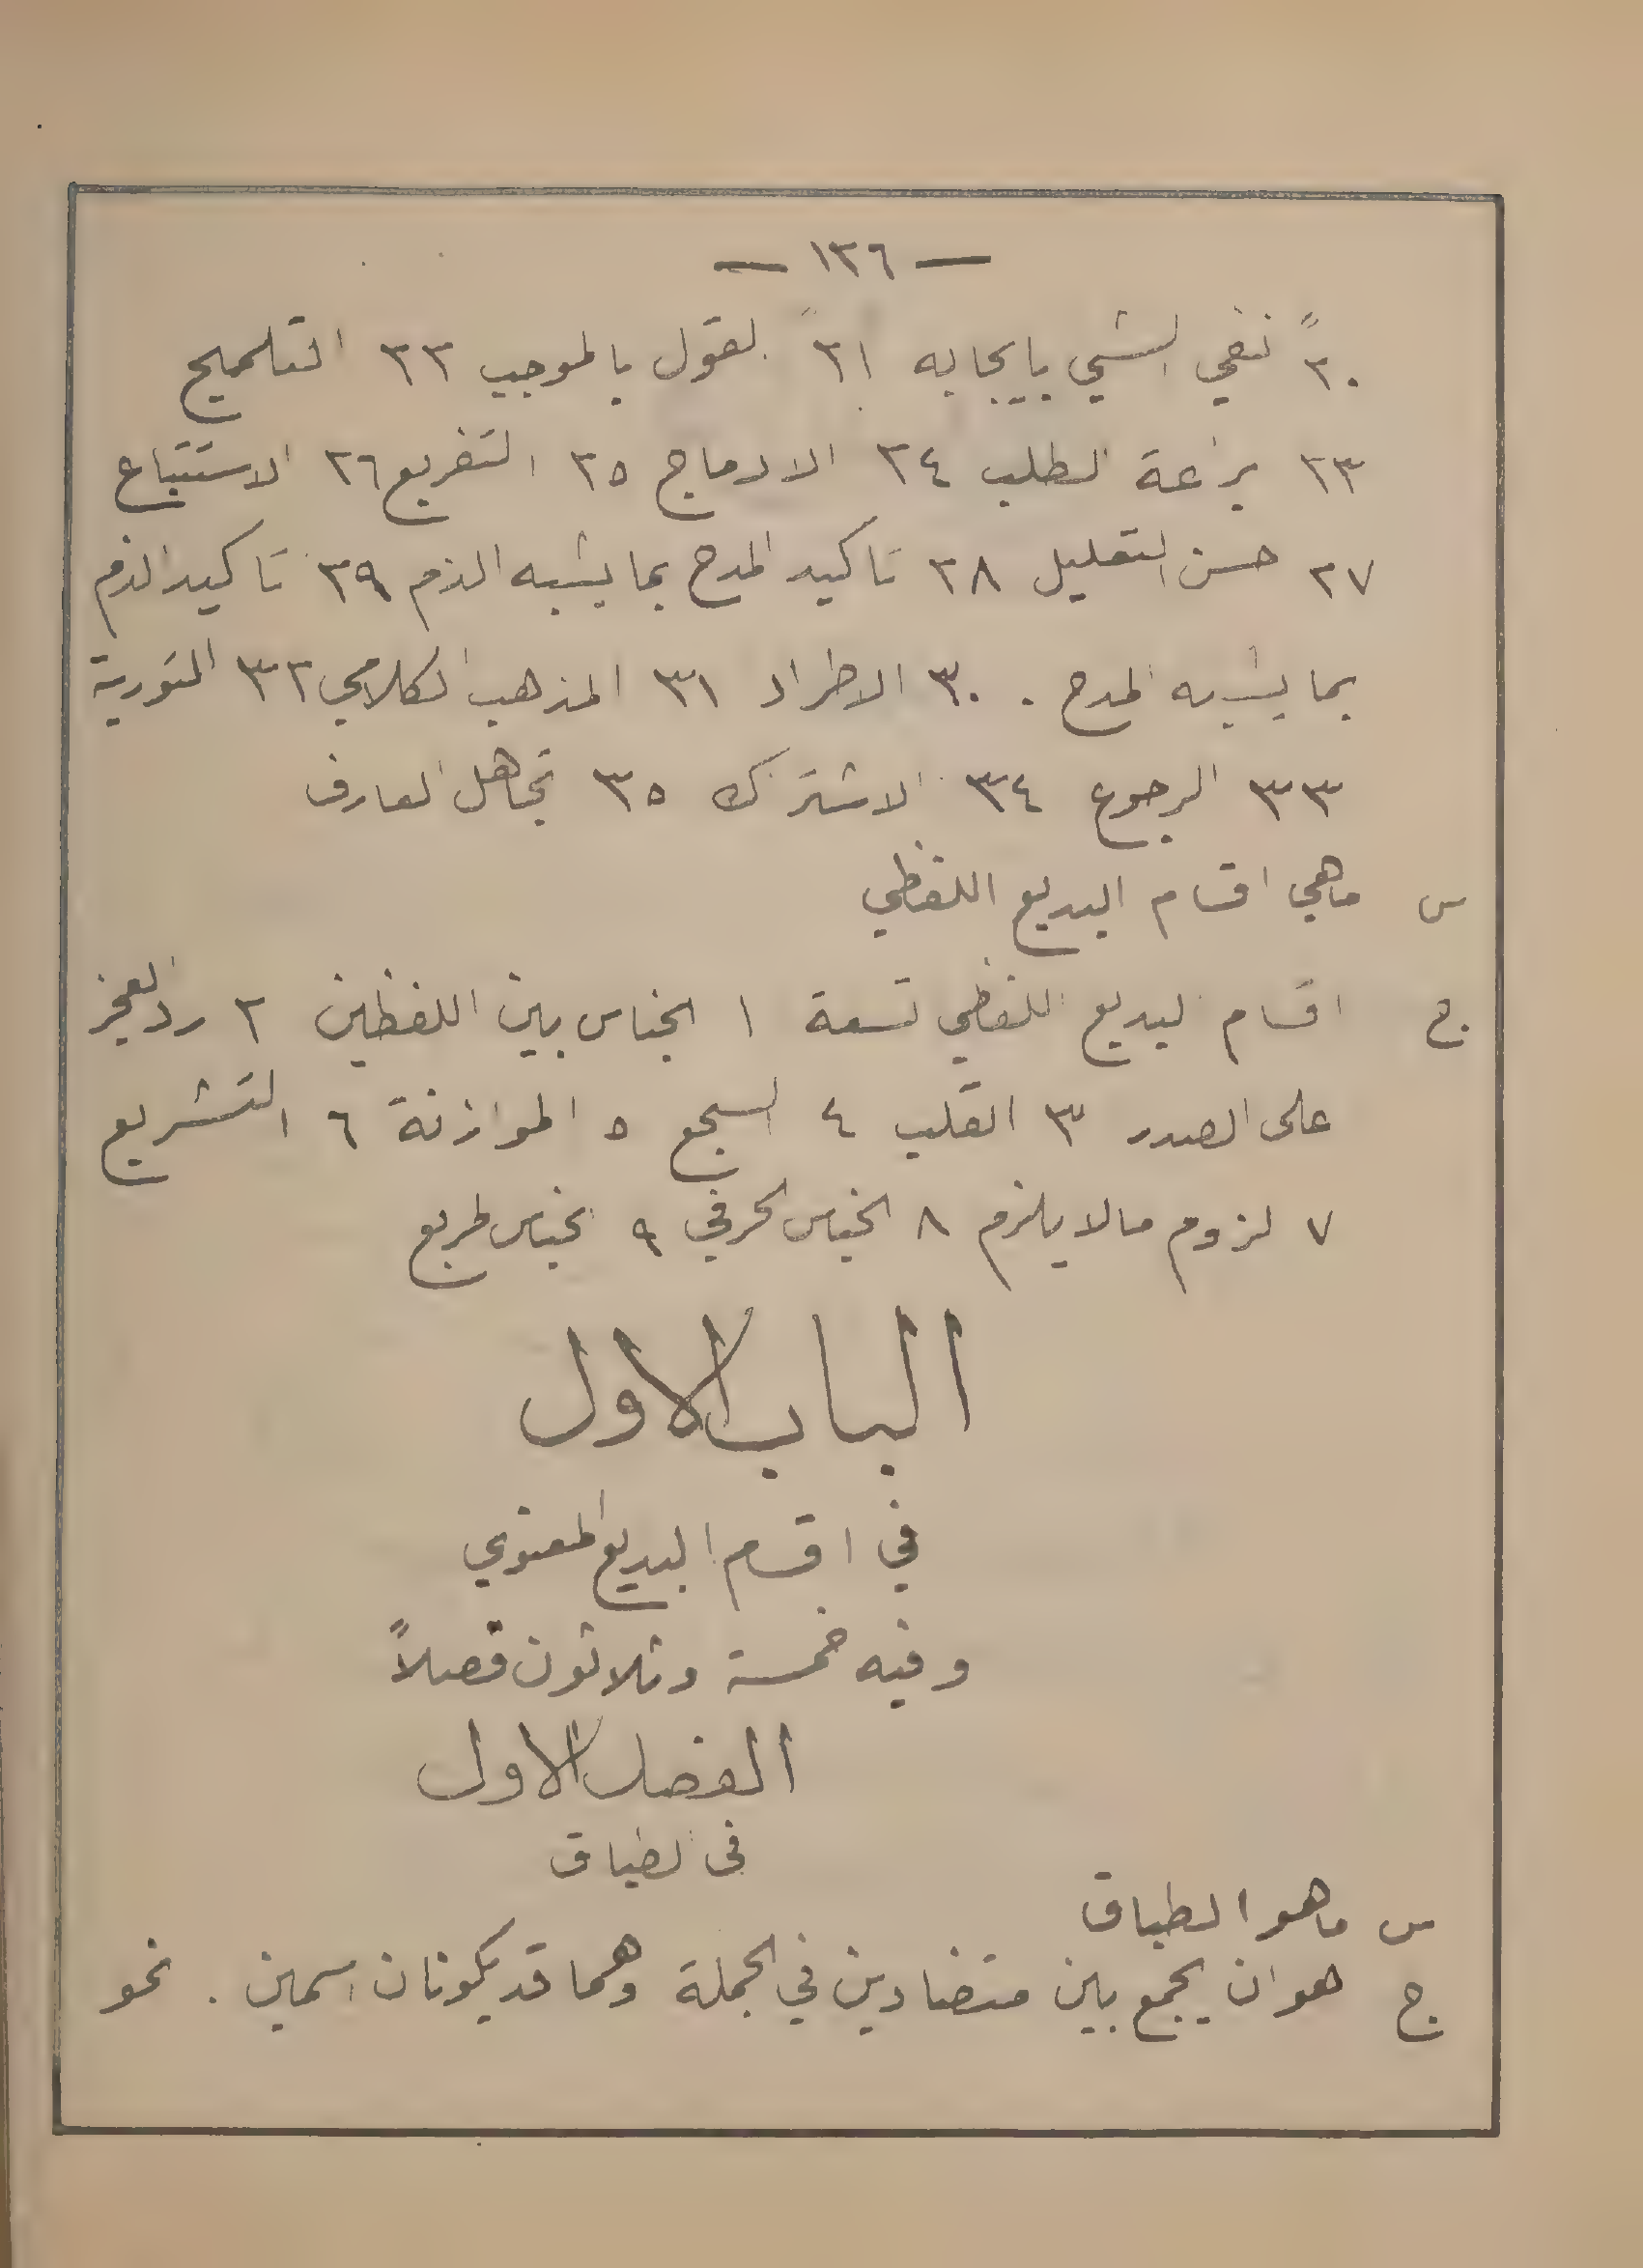 — ١٣٦ —
٢٠ً نفي الشي بايجابه ٢١ً القول بالموجب ٢٢ التلميح
٢٣ براعة الطلب ٢٤ الادماج ٢٥ التفريع ٢٦ الاستتباع
٢٧ حسن التعليل ٢٨ تاكيد المدح بما يشبه الذم ٢٩ تاكيد الذم
بما يشبه المدح . ٣٠ الاطراد ٣١ المذهب الكلامي ٣٢ التورية
٣٣ الرجوع ٣٤ الاشتراك ٣٥ تجاهل العارف
س ماهي اقسام البديع اللفظي
ج اقسام البديع اللفظي تسعة ١ الجناس بين اللفظين ٢ رد العجز
على الصدر ٣ القلب ٤ السجع ٥ الموازنة ٦ التشريع
٧ لزوم مالا يلزم ٨ الجناس الحرفي ٩
الباب الاول
في اقسام البديع المعنوي
وفيه خمسة وثلاثون فصلاً
الفصل الاول
في الطباق
س ماهو الطباق
ج هو ان يجمع بين متضادين في الجملة وهما قد يكونان اسمين . نحو